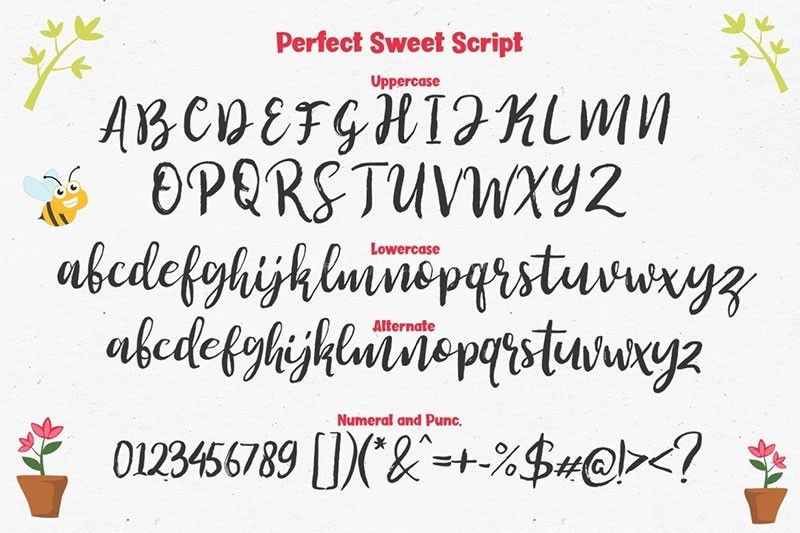 Perfect Sweet Script
Uppercase
ABCDEFGHIJKLMN
OPQRSTUVWXYZ
Lowercase
abcdefghijklmnopqrstuvwxyz
Alternate
abcdefghijklmnopqrstuvwxyz
Numeral and Punc.
0123456789 [])(*&^=+-%$#@!><?